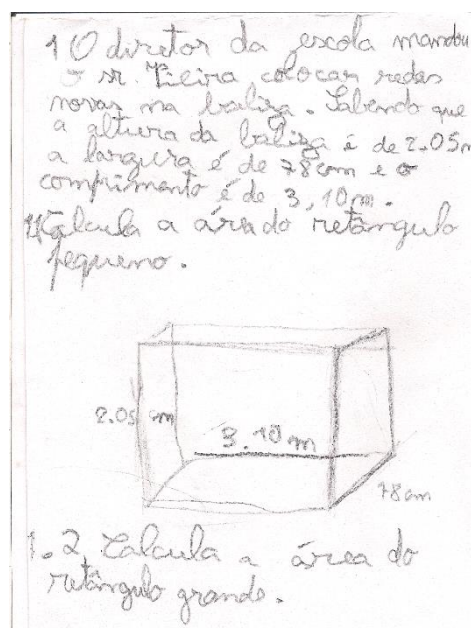 1 O diretor da escola mandou
o sr. Vieira colocar redes
novas na baliza. Sabendo que
a altura da baliza é de 2.05m
a largura é de 78cm e o
comprimento é de 3,10m.
1.1 Calcula a área do retângulo
pequeno.
2.05 cm
3.10 m
78 cm
1.2 Calcula a área do
retângulo grande.